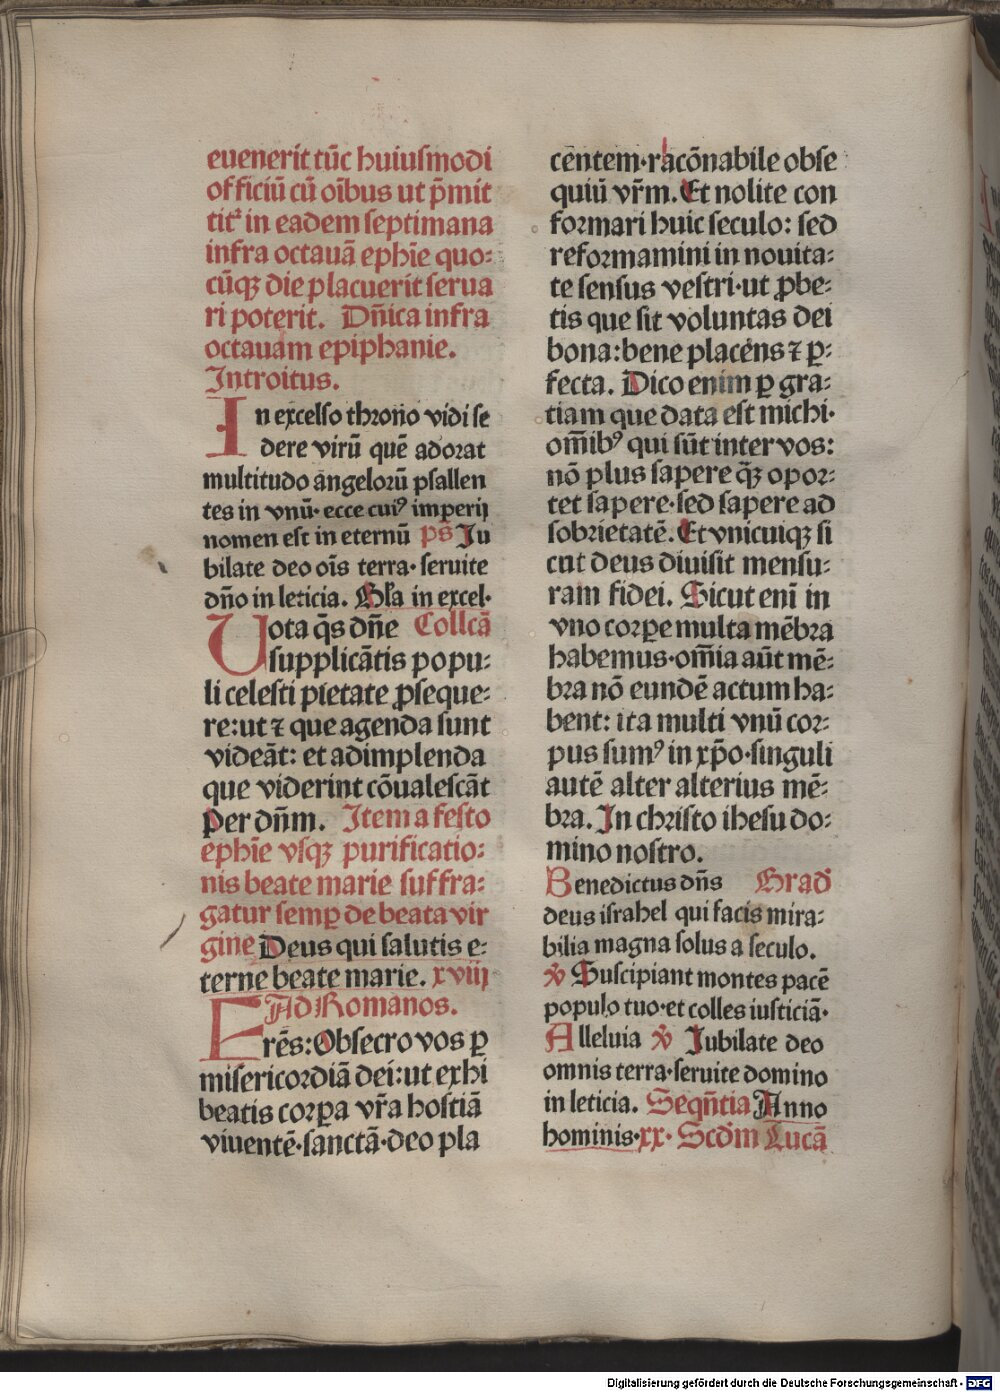 euenerit tūc huiusmodi
officiū cū oībus ut p̄mit
titr̄ in eadem septimana
infra octauā ephīe quo:
cūqꝫ die placuerit serua
ri poterit. Dn̄ica infra
octauam epiphanie.
Introitus.
In excelso throno vidi se
dere virū quē adorat
multitudo angelorū psallen
tes in vnū· ecce cuiꝰ imperij
nomen est in eternū ps̄ Iu
bilate deo oīs terra· seruite
dn̄o in leticia. Gl̄a in excel·
Uota q̄s dn̄e Collcā
supplicātis popu:
li celesti pietate ꝓseque:
re: ut ⁊ que agenda sunt
videāt: et adimplenda
que viderint cōualescāt
Per dn̄m. Item a festo
ephīe vsqꝫ purificatio:
nis beate marie suffra:
gatur semꝑ de beata vir
gine Deus qui salutis e:
terne beate marie. xviij
Ad Romanos.
Frēs: Obsecro vos ꝑ
misericordiā dei: ut exhi
beatis corꝑa vr̄a hostiā
viuentē· sanctā· deo pla
centem· racōnabile obse
quiū vr̄m. Et nolite con
formari huic seculo: sed
reformamini in nouita:
te sensus vestri· ut ꝓbe:
tis que sit voluntas dei
bona: bene placens ⁊ ꝑ:
fecta. Dico enim ꝑ gra:
tiam que data est michi·
om̄ibꝰ qui sūt inter vos:
nō plus sapere q̄ꝫ opor:
tet sapere· sed sapere ad
sobrietatē. Et vnicuiqꝫ si
cut deus diuisit mensu:
ram fidei. Sicut enī in
vno corꝑe multa mēbra
habemus· om̄ia aūt mē:
bra nō eundē actum ha:
bent: ita multi vnū cor:
pus sumꝰ in xp̄o· singuli
autē alter alterius mē:
bra. In christo ihesu do:
mino nostro.
Benedictus dn̄s Grad̄
deus israhel qui facis mira:
bilia magna solus a seculo.
℣ Suscipiant montes pacē
populo tuo· et colles iusticiā·
Alleluia ℣ Iubilate deo
omnis terra· seruite domino
in leticia. Seqn̄tia Anno
hominis· xx· Scd̄m Lucā
Digitalisierung gefördert durch die Deutsche Forschungsgemeinschaft - DFG